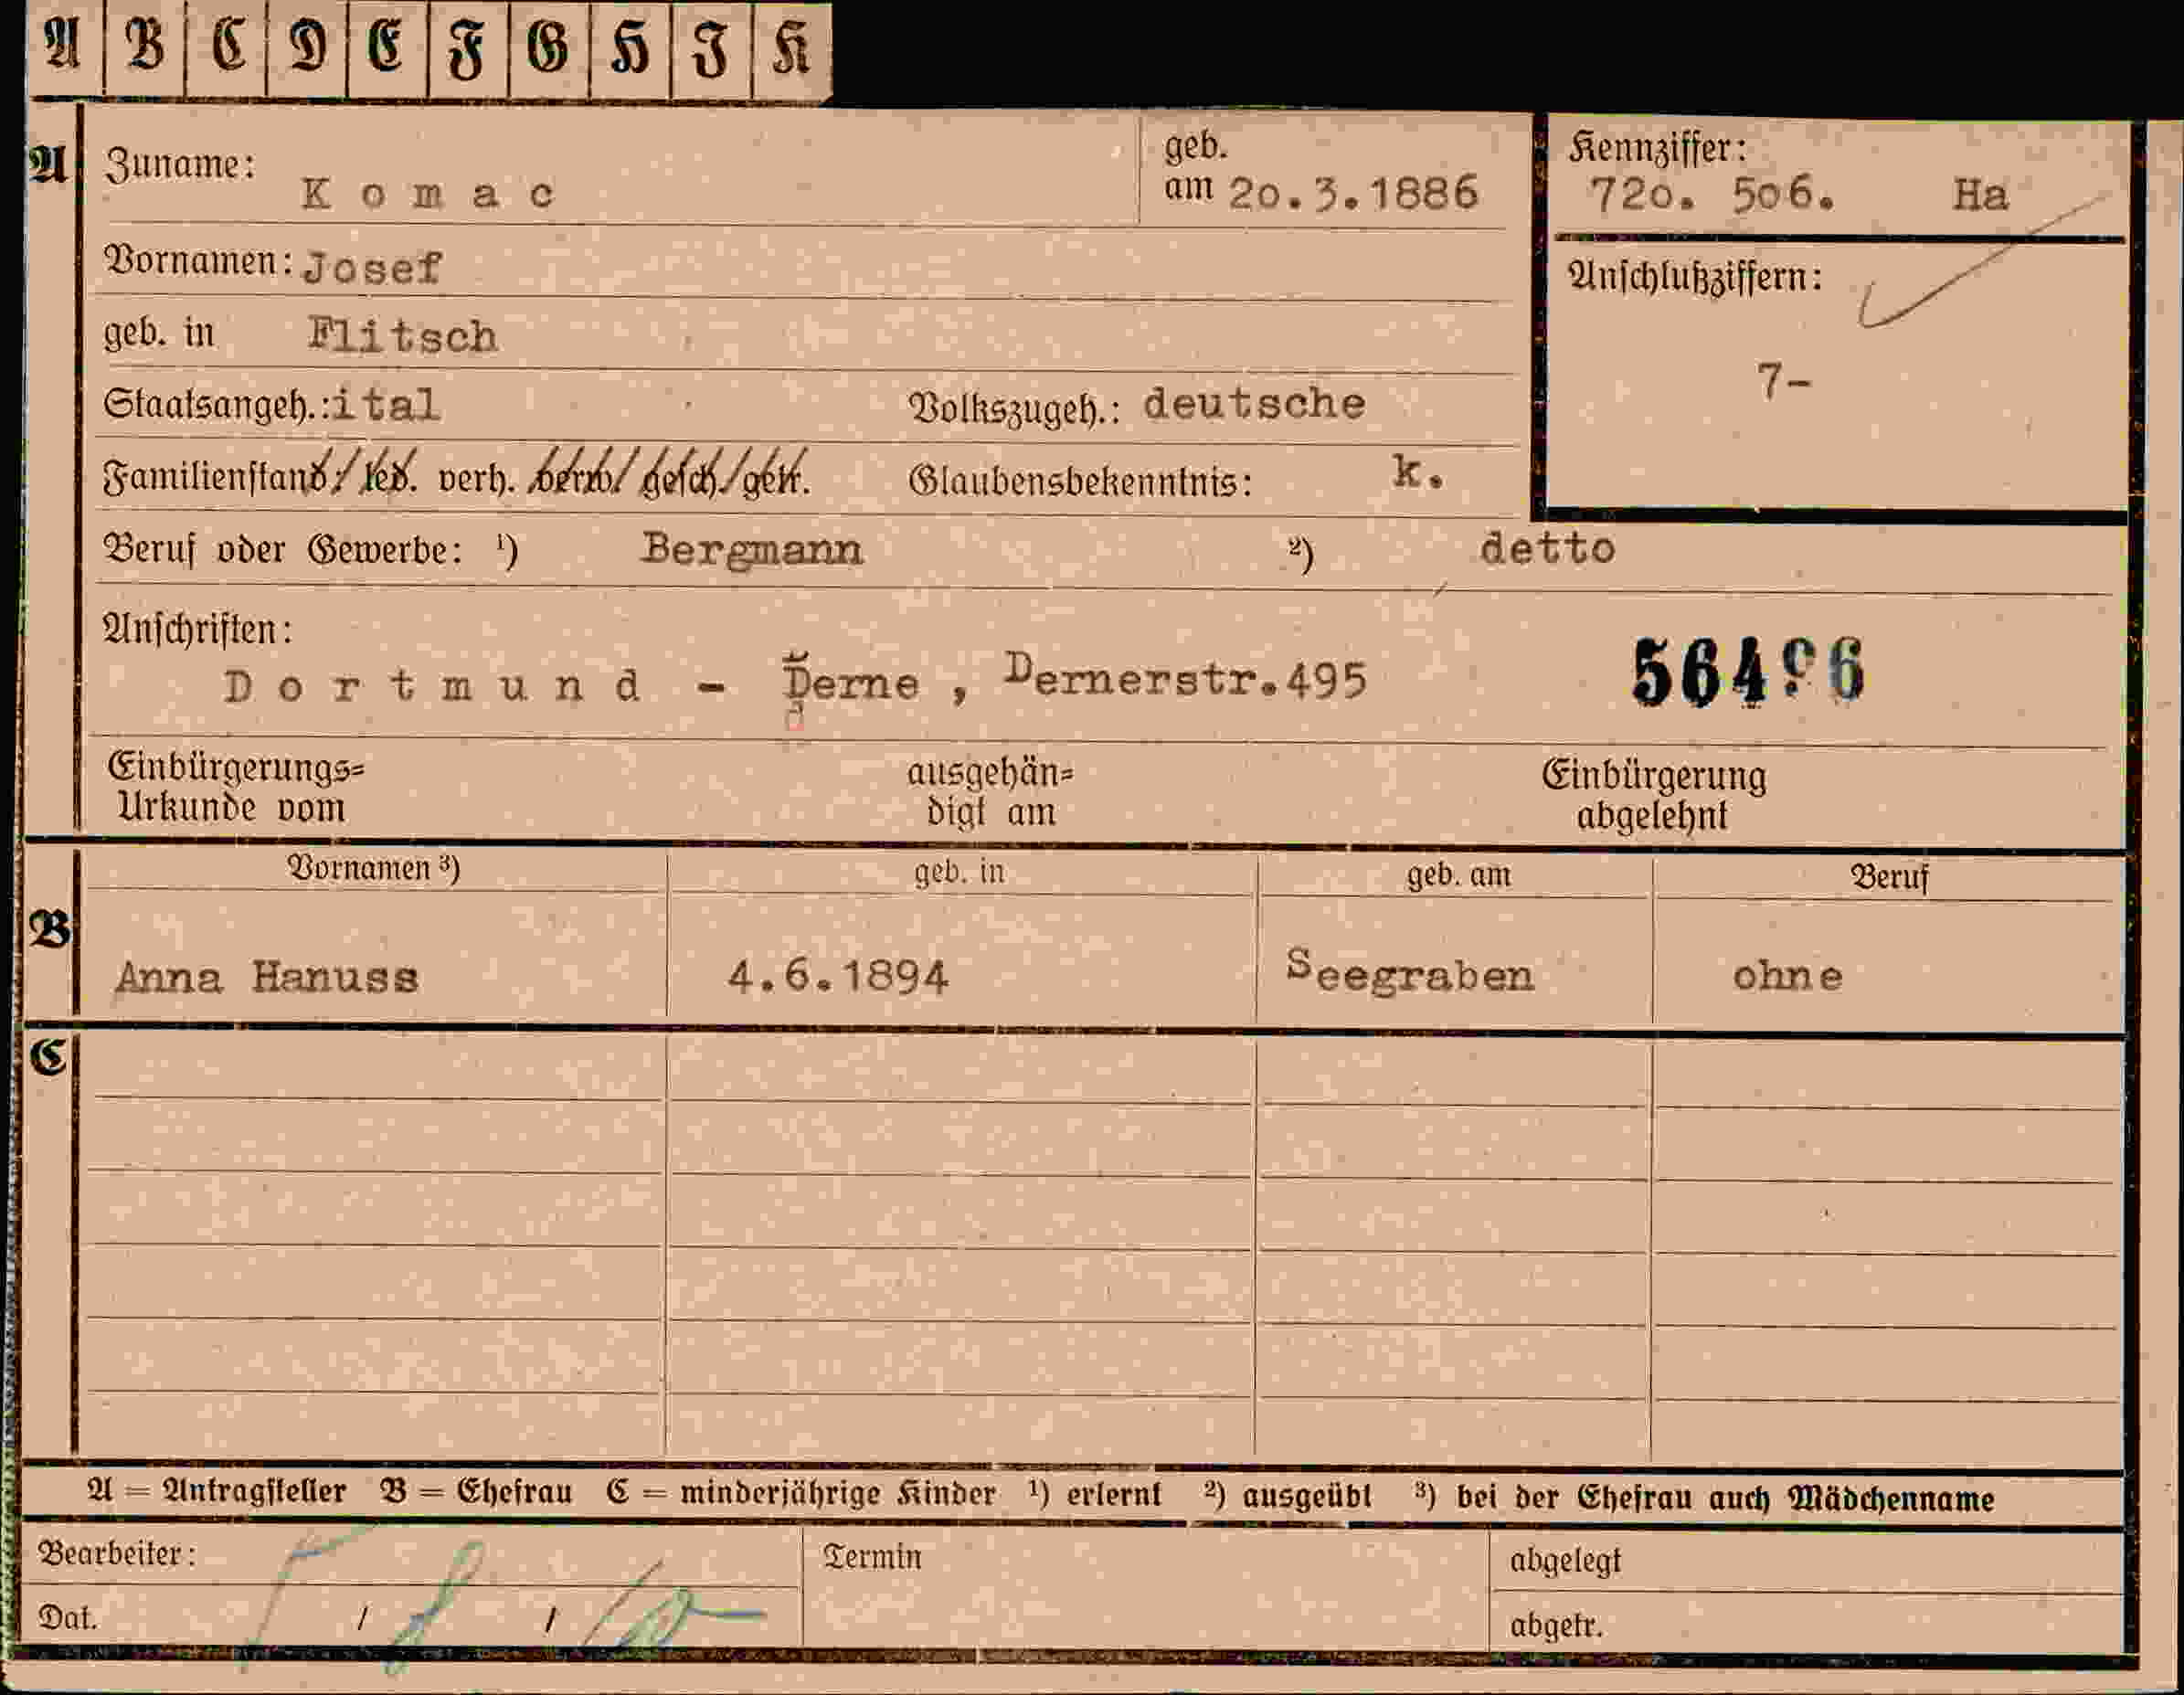 A B C D E F G H J K
A Zuname: Komac geb. am 20.3.1886
Kennziffer: 720. 506. Ha
Vornamen: Josef
Anschlußziffern:
geb. in Flitsch
7-
Staatsangeh.: ital Volkszugeh.: deutsche
Familienstand: led. verh. verw. gesch. getr. Glaubensbekenntnis: k.
Beruf oder Gewerbe: ¹) Bergmann ²) detto
Anschriften:
Dortmund - Derne , Dernerstr.495
Einbürgerungs=
Urkunde vom
ausgehän=
digt am
Einbürgerung
abgelehnt
Vornamen ³) geb. in geb. am Beruf
B Anna Hanuss 4.6.1894 Seegraben ohne
C
A = Antragsteller B = Ehefrau C = minderjährige Kinder ¹) erlernt ²) ausgeübt ³) bei der Ehefrau auch Mädchenname
Bearbeiter: Termin abgelegt
Dat. / / abgetr.